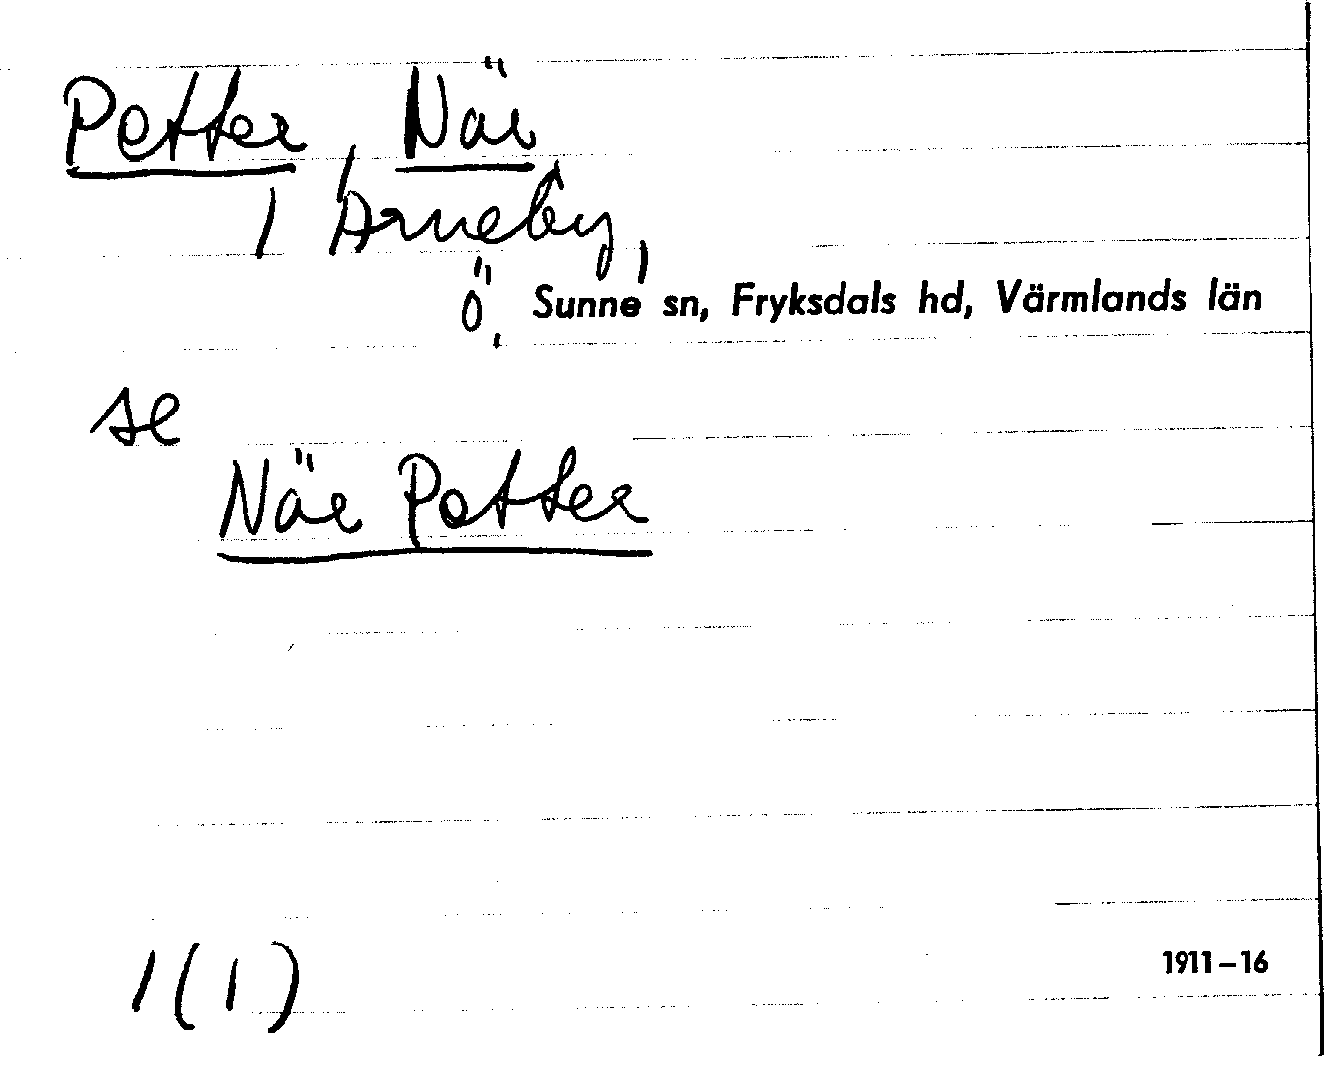 Petter, När
I Arneby,
Ö. Sunne sn, Fryksdals hd, Värmlands län
se
När Petter
1(1)
1911–16